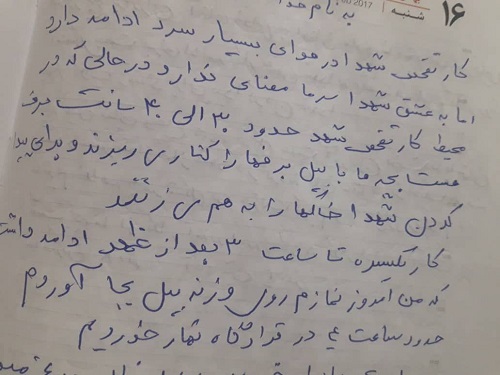 ۱۶ شنبه 2017 به نام خدا
کار تفحص شهدا در هوای بسیار سرد ادامه دارد
اما به عشق شهدا سرما معنای ندارد در حالی که در
محیط کار تفحص شهد حدود ۳۰ الی ۴۰ سانت برف
هست بچه ها با بیل برفها را کناری ریزند و برای پیدا
کردن شهدا خاکها را به هم می زنند
کار یکسره تا ساعت ۳ بعد از ظهر ادامه داشت
که من امروز نمازم روی وزنه بیل بجا آوردم
حدود ساعت ۴ در قرارگاه نهار خوردیم